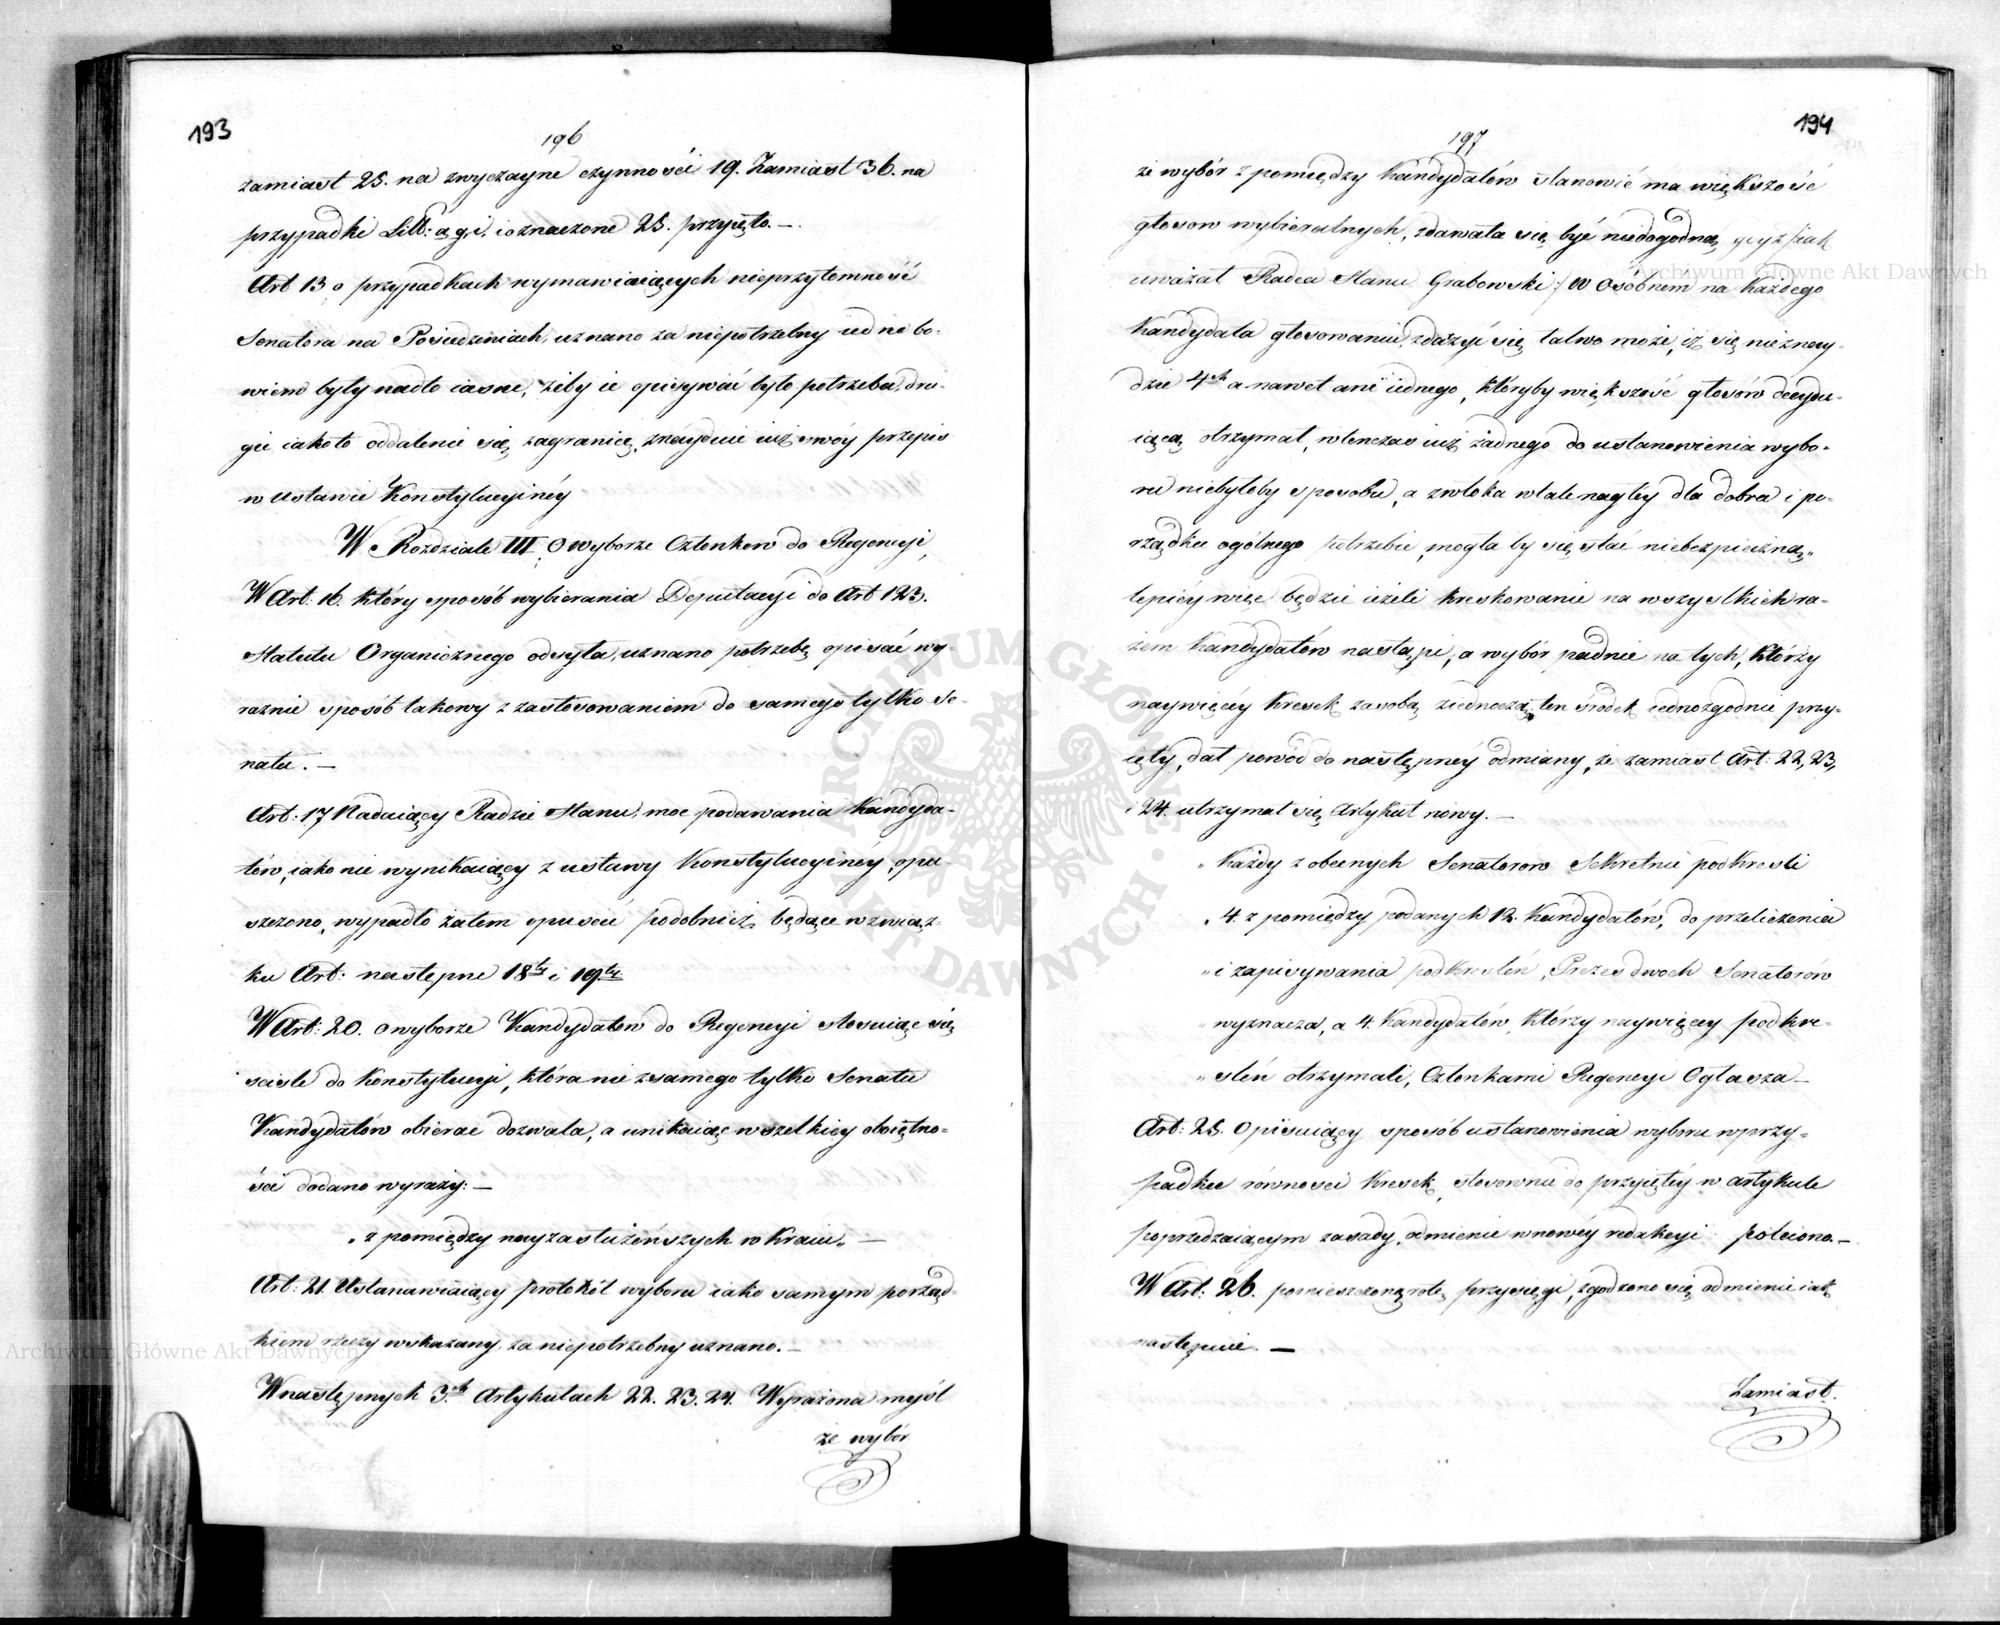 193
196
zamiast 25. na zwyczayne czynności 19. Zamiast 36. na
przypadki Litt: a, g, i, i oznaczone 25. przyięto. —
Art 13 o przypadkach wymawiaiących nieprzytomność
Senatora na Posiedzeniach, uznano za niepotrzebny iedne bo-
wiem były nadto iasne, żeby ie opisywać było potrzeba, dru-
gie iakoto oddalenie się zagranicę, znayduie iuż swóy przepis
w ustawie Konstytucyinéy
W Rozdziale III, O wyborze Członków do Regencyi,
W Art: 16. który sposób wybierania Deputacyi do Art 123.
Statutu Organicznego odsyła, uznano potrzebę opisać wy-
raźnie sposób takowy z zastosowaniem do samego tylko Se-
natu. —
Art: 17 Nadaiący Radzie Stanu, moc podawania Kandyda-
tów, iako nie wynikaiący z ustawy Konstytucyinéy, opu-
szczono, wypadło zatem opuścić podobnież będące w związ-
ku Art: następne 18ty i 19ty
W Art: 20. o wyborze Kandydatów do Regencyi stosuiąc się
ściśle do Konstytucyi, która nie z samego tylko Senatu
Kandydatów obierać dozwala, a unikaiąc wszelkiey obiętno-
ści dodano wyrazy: —
„z pomiędzy nayzasłużeńszych w Kraiu„ —
Art: 21. Ustanawiaiący protokół wyboru iako samym porząd-
kiem rzeczy wskazany, za niepotrzebny uznano. —
W następnych 3ch Artykułach 22. 23. 24. Wyrażona myśl
że wybór
194
197
że wybór z pomiędzy Kandydatów stanowić ma większość
głosow wybieralnych, zdawała się być niedogodną, gdyż /: iak
uważał Radca Stanu Grabowski :/ w osóbnem na każdego
Kandydata głosowaniu, zdażyć się łatwo może, iż się nieznay-
dzie 4ch a nawet ani iednego, któryby większość głosów decydu-
iącą otrzymał, wtenczas iuż żadnego do ustanowienia wybo-
ru niebyłoby sposobu, a zwłoka w tale nagłéy dla dobra i po-
rządku ogólnego potrzebie, mogłaby się stać niebezpieczną,
lepiéy więc będzie ieżeli kreskowanie na wszystkich ra-
zem Kandydatów nastąpi, a wybór padnie na tych, którzy
naywięcéy kresek za sobą ziednoczą; ten środek iednozgodnie przy-
ięty, dał powód do następnéy odmiany, że zamiast Art: 22, 23,
i 24. utrzymał się Artykuł nowy. —
„Każdy z obecnych Senatorow Sekretnie podkreśli
„4 z pomiędzy podanych 12. Kandydatów, do przeliczenia
„i zapisywania podkreśleń, Prezes dwoch Senatorów
„wyznacza, a 4. Kandydatów, którzy naywięcéy podkre-
„śleń otrzymali, Członkami Regencyi Ogłasza —
Art: 25. Opisuiący sposób ustanowienia wyboru w przy-
padku równości kresek, stosownie do przyiętéy w artykule
poprzedzaiącym zasady, odmienić w nowéy redakcyi polecono. —
W Art: 26. pomieszczoną rotę przysięgi, zgodzono się odmienić iak
następuie. —
Zamiast.